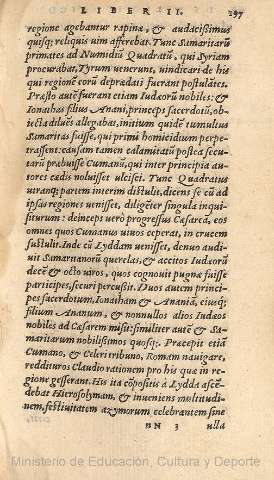 LIBER II. 197
regione agebantur rapina, & audacissimus
quisq; reliquis uim afferebat. Tunc Samaritarũ
primates ad Numidiũ Quadratũ, qui Syriam
procurabat, Tyrum uenerunt, uindicari de his
qui regionẽ eorũ depraedati fuerant postulãtes.
Praesto autẽ fuerant etiam Iudaeorũ nobiles: &
Ionathas filius Anani, princeps sacerdotũ, ob-
iecta diluẽs allegabat, initium quidẽ tumultus
Samaritas fuisse, qui primi homicidium perpe-
trassent: causam tamen calamitatũ postea secu-
tarũ praebuisse Cumanũ, qui inter principia au-
tores caedis noluisset ulcisci. Tunc Quadratus
utranq; partem interim distulit, dicens se cũ ad
ipsas regiones uenisset, diligẽter singula inqui-
siturum: deinceps uerò progressus Caesareã, eos
omnes quos Cumanus uiuos ceperat, in crucem
sustulit. Inde cũ Lyddam uenisset, denuo audi-
uit Samaritanorũ querelas, & accitos Iudaeorũ
decẽ & octo uiros, quos cognouit pugnae fuisse
participes, securi percussit. Duos autem princi-
pes sacerdotum, Ionatham, & Ananiã, eiusq;
filium Ananum, & nonnullos alios Iudaeos
nobiles ad Caesarem misit: similiter autẽ & Sa-
maritarum nobilissimos quosq;. Praecepit etiã
Cumano, & Celeri tribuno, Romam nauigare,
reddituros Claudio rationem pro his quae in re-
gione gesserant. His ita cõpositis à Lydda ascẽ-
debat Hierosolymam, & inueniens multitudi-
nem, festiuitatem azymorum celebrantem sine
NN 3 ulla
Ministerio de Educación, Cultura y Deporte